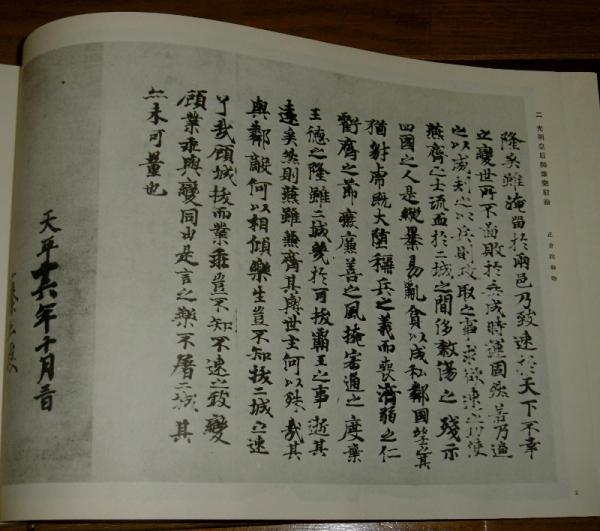 二 光明皇后御筆樂毅論 正倉院御物
隆矣雖淹留於兩邑乃致速於天下不幸
之變世所不圖敗於垂成時運固然若乃逼
之以威劫之以兵則攻取之事求欲速之功使
燕齊之士流血於二城之間侈殺傷之殘示
四國之人是縱暴易亂貪以成私鄰國望之其
猶豺虎既大墮稱兵之義而喪濟弱之仁
虧齊之節廢廉善之風掩宏通之度棄
王德之隆雖二城幾於可拔霸王之事逝其
遠矣然則燕雖兼齊其與世主何以殊哉其
與鄰敵何以相傾樂生豈不知拔二城之速
了哉顧城拔而業乖豈不知不速之致變
顧業乖與變同由是言之樂不屠二城其
亦未可量也
天平十六年十月三日